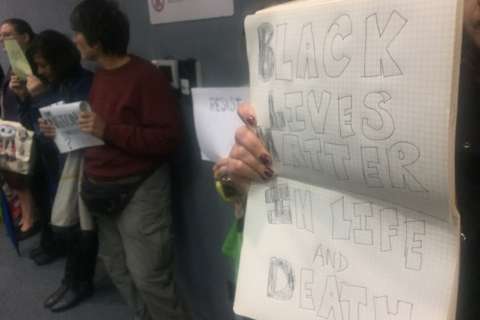 RESIST
BLACK
LIVES
MATTER
IN LIFE
AND
DEATH